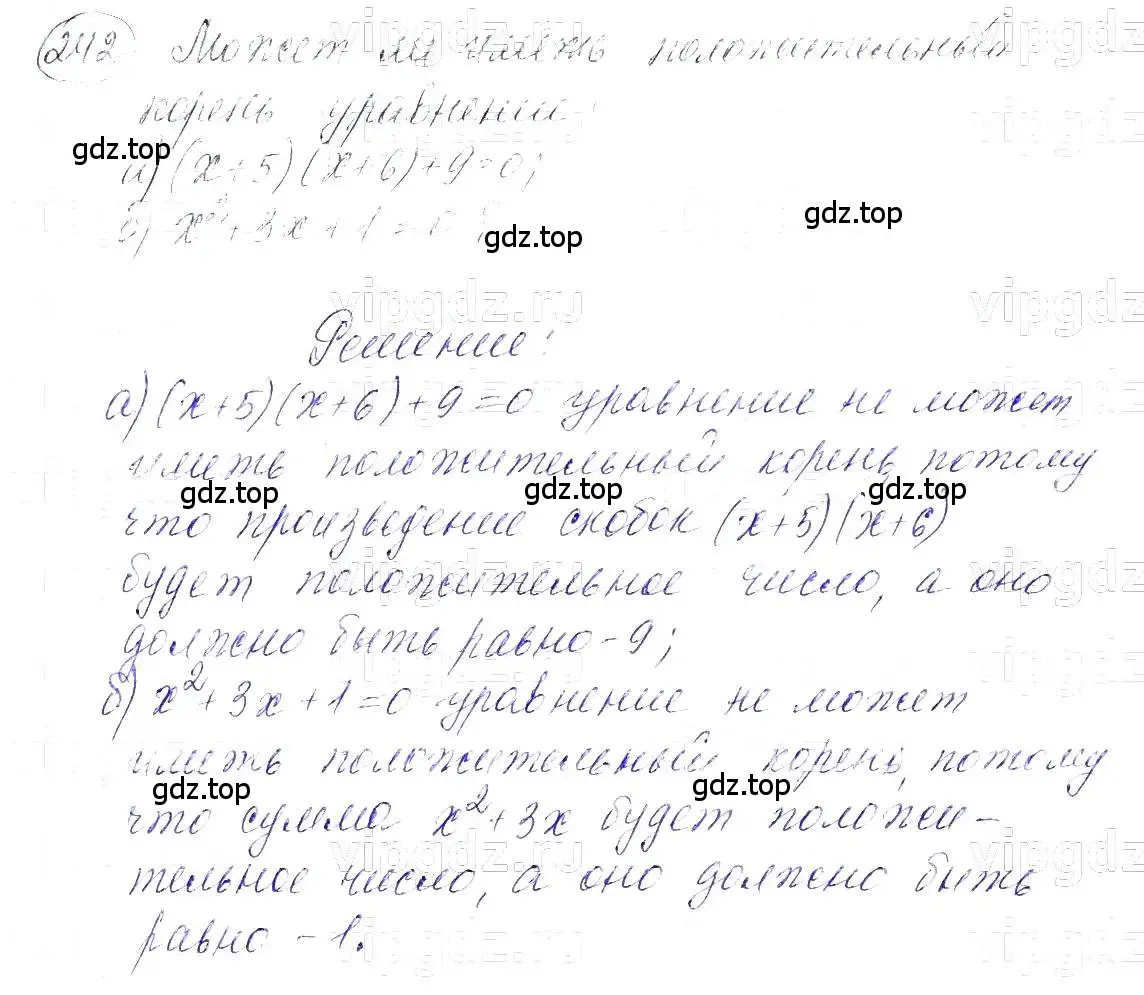 242 Может ли иметь положительный
корень уравнение:
а) (x+5)(x+6)+9=0;
gdz.top
б) x²+3x+1=0?
gdz.top
gdz.top
vipgdz.ru
Решение:
а) (x+5)(x+6)+9=0 уравнение не может
иметь положительный корень, потому
gdz.top gdz.top gdz.top
что произведение скобок (x+5)(x+6)
будет положительное число, а оно
должно быть равно -9;
б) x²+3x+1=0 уравнение не может
иметь положительный корень, потому
gdz.top gdz.top
что сумма x²+3x будет положи-
тельное число, а оно должно быть
равно -1.